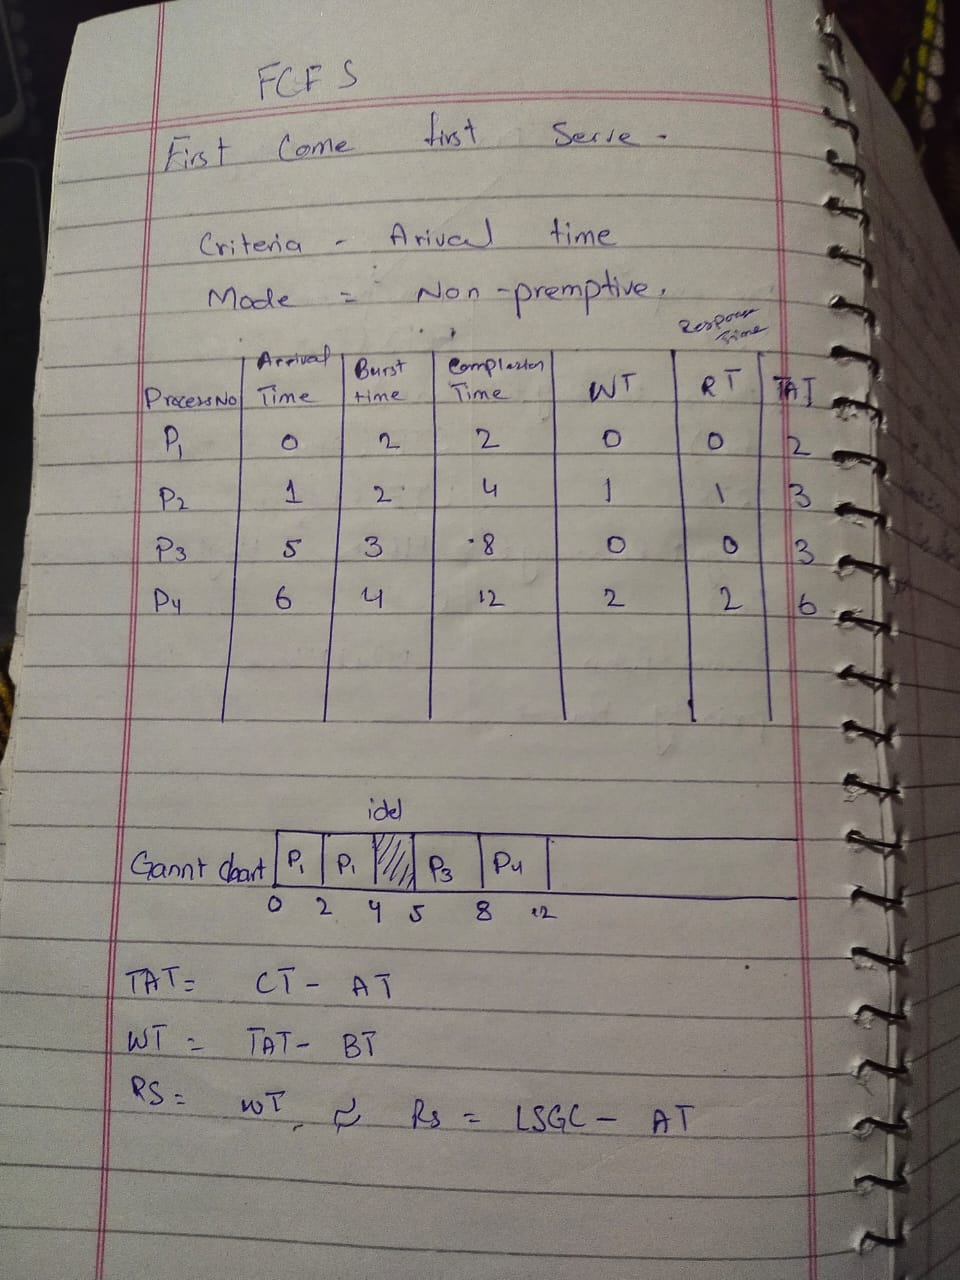 FCFS
First Come first Serve.
Criteria - Arival time
Mode = Non-premptive.
Response Time
Process No Arrival Time Burst time Complection Time WT RT TAT
P1 0 2 2 0 0 2
P2 1 2 4 1 1 3
P3 5 3 8 0 0 3
P4 6 4 12 2 2 6
idel
Gannt chart P1 P1 P3 P4
0 2 4 5 8 12
TAT= CT - AT
WT = TAT- BT
RS = WT ≈ Rs = LSGC - AT